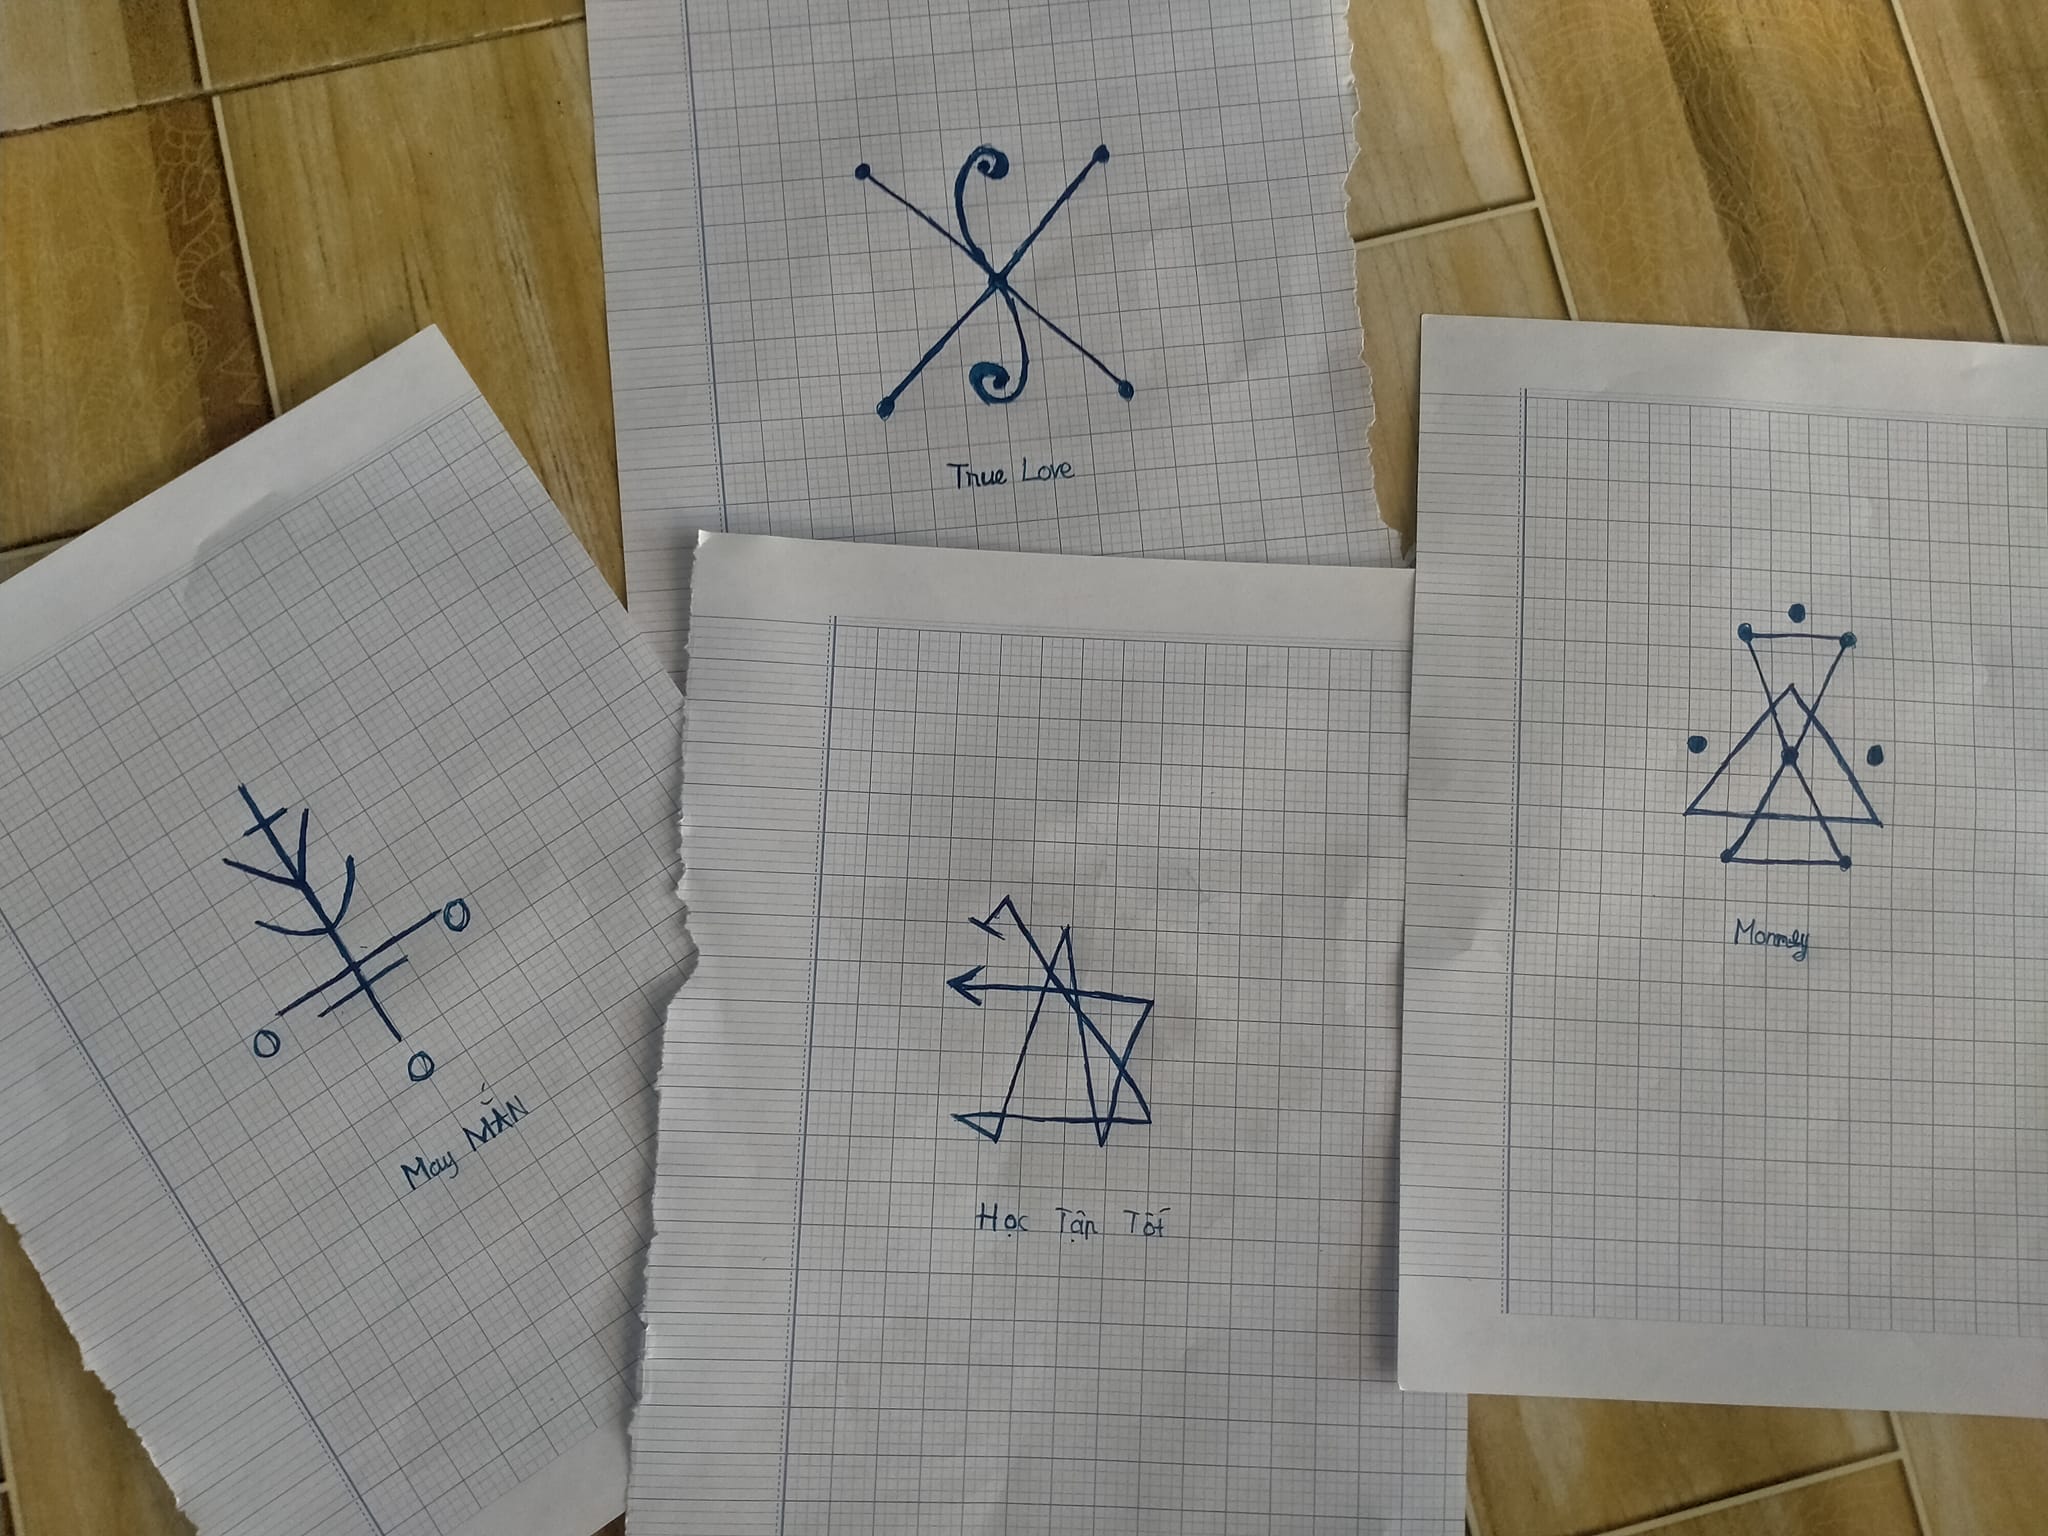 True Love
May MẮN
Học Tập Tốt
Monney